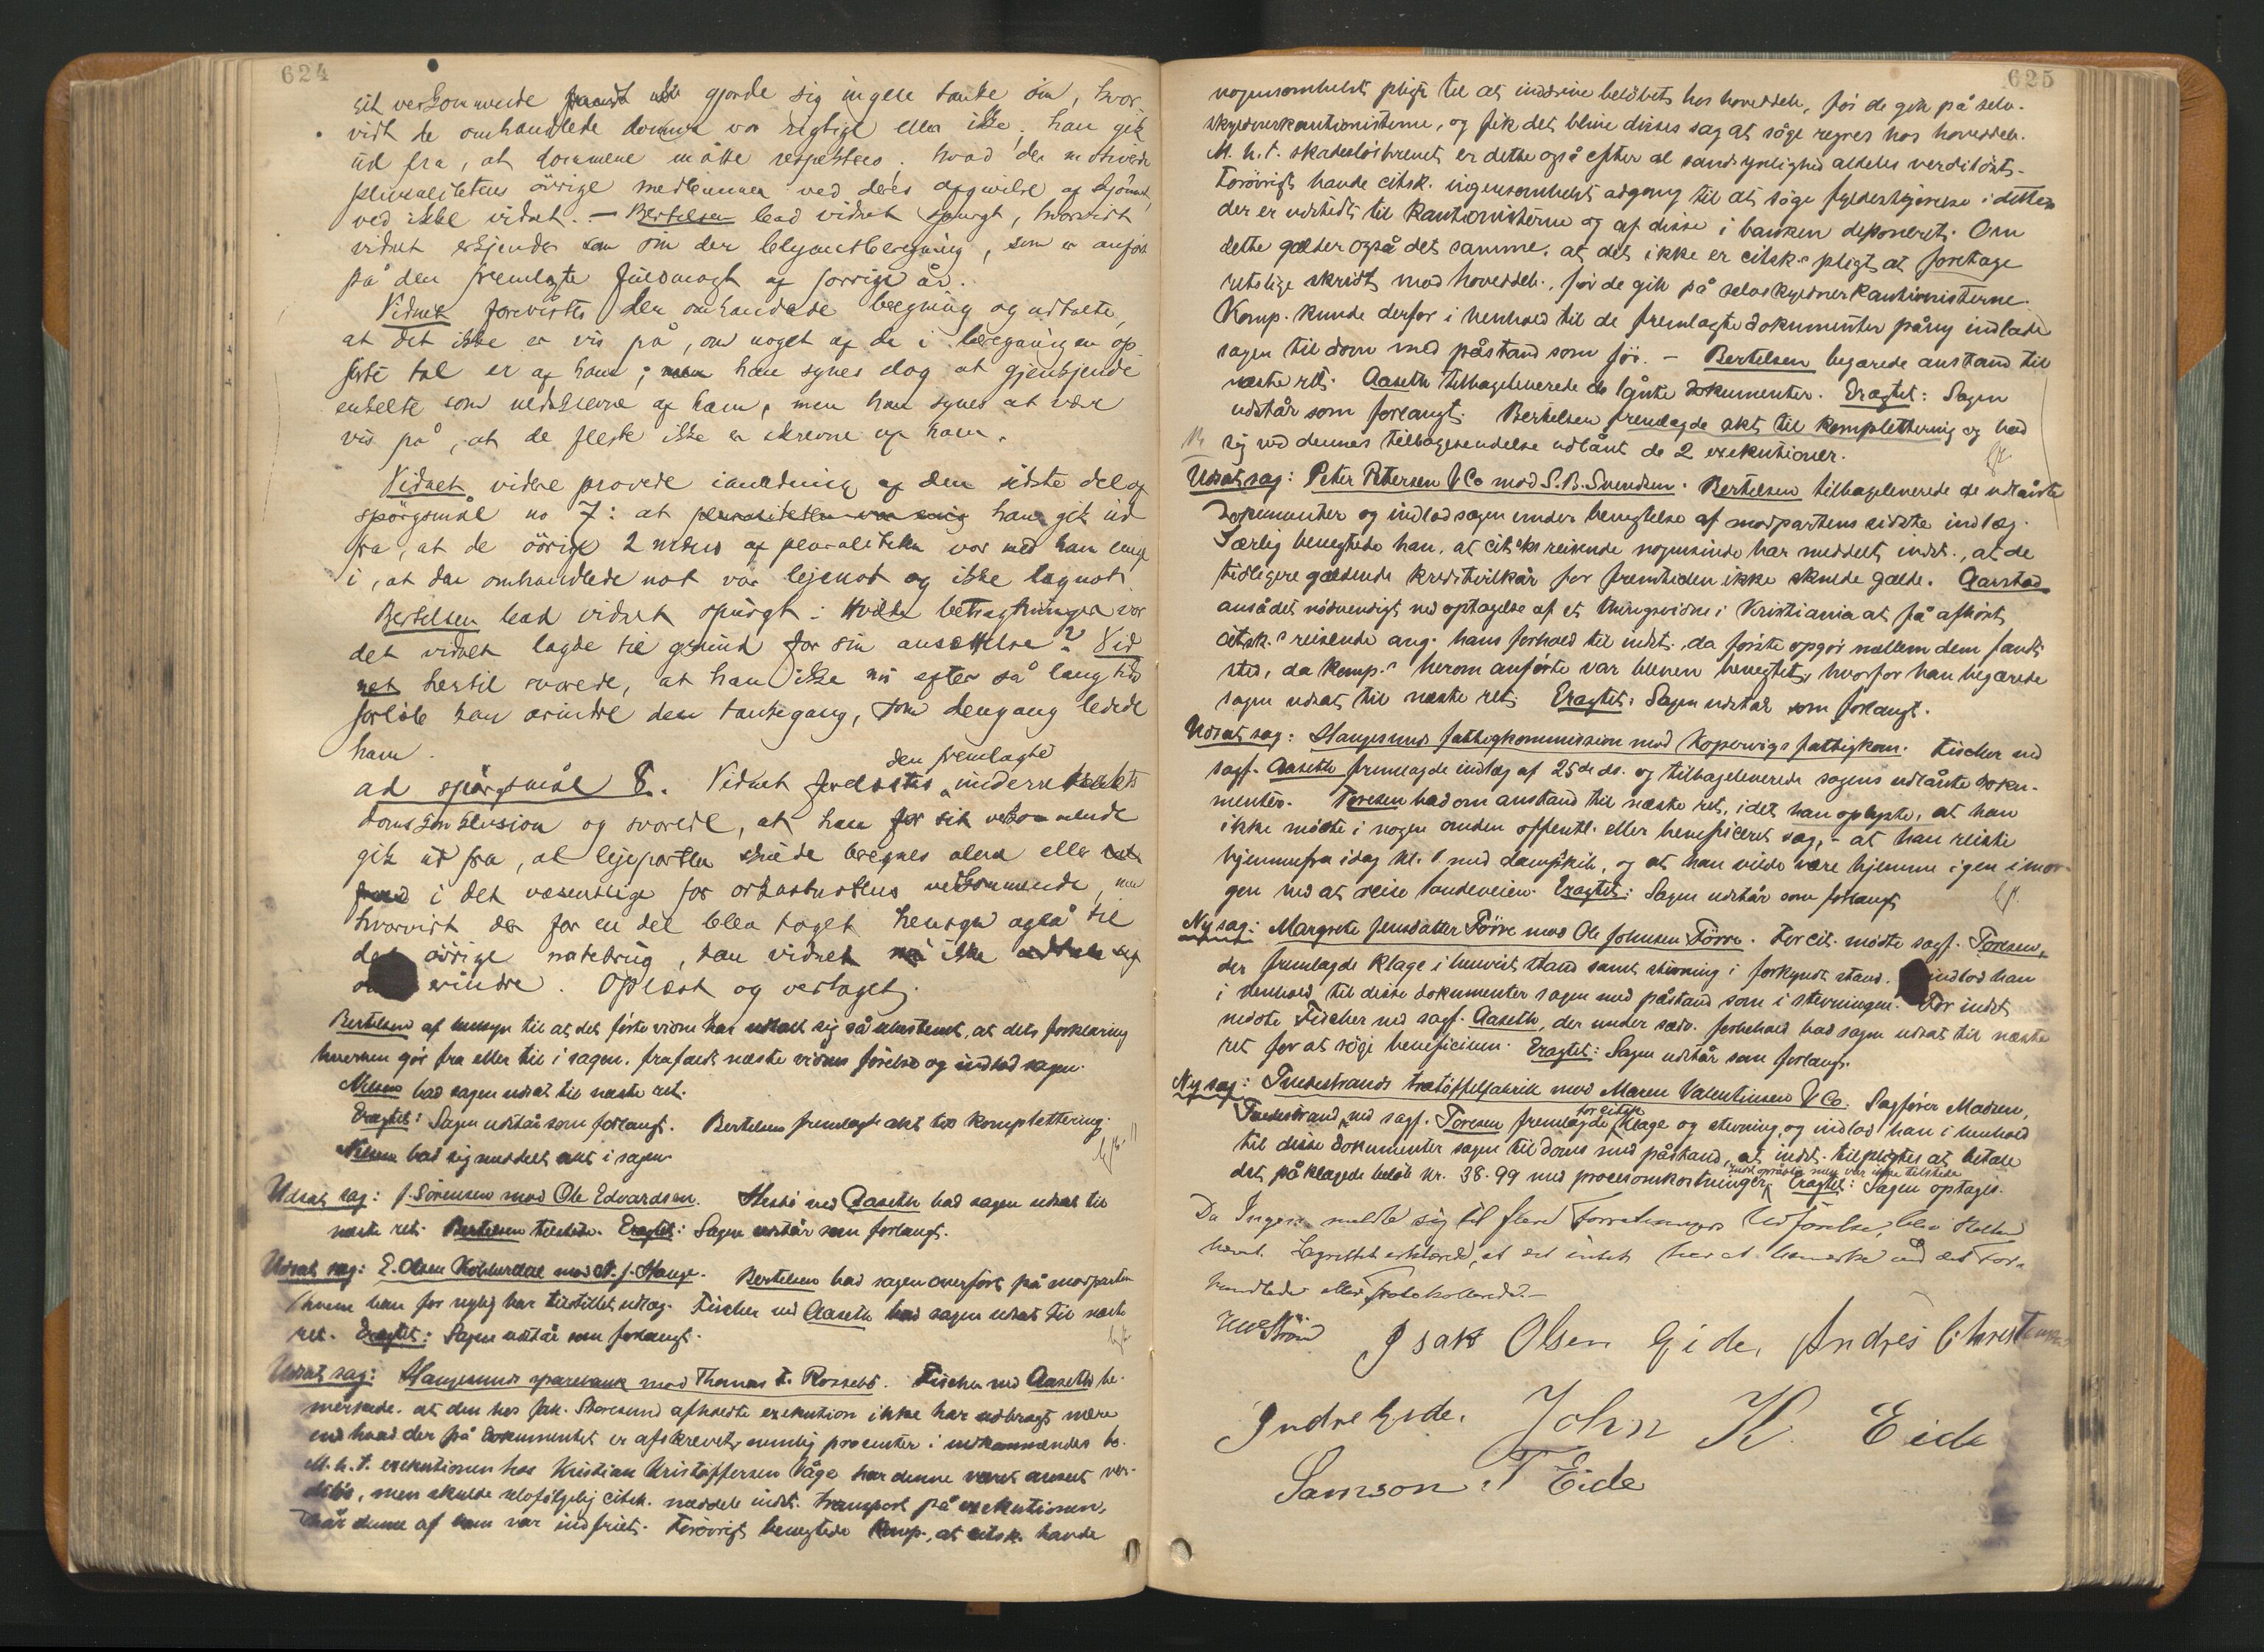 624
sit vedkommende gjorde sig ingen tanke om, hvor-
vidt de omhandlede domme var rigtige eller ikke; han gik
ud fra, at dommene måtte respekteres; hvad der motiverede
pluralitetens övrige medlemmer ved deres afgivelse af skjönnet,
ved ikke vidnet. — Bertelsen bad vidnet spurgt, hvorvidt
vidnet erkjender som sin den beregning, som er anfört
på den fremlagte fuldmagt af forrige år.
Vidnet forevistes den omhandlede beregning og udtalte,
at det ikke er vis på, om noget af de i beregningen op-
förte tal er af ham; men han synes dog at gjenkjende
enkelte som nedskrevne af ham, men han synes at være
vis på, at de fleste ikke er skrevne af ham.
Vidnet videre provede i anledning af den sidste del af
spörgsmål no 7: at pluraliteten var enig han gik ud
fra, at de övrige 2 mænd af pluraliteten var med ham enige
i, at den omhandlede not var lejenot og ikke lagnot.
Bertelsen bad vidnet spurgt: Hvilke betragtninger var
det vidnet lagde til grund for sin ansættelse? Vid
net hertil svarede, at han ikke nu efter så lang tids
forlöb kan erindre den tankegang, som dengang ledede
ham.
den fremlagte
ad spörgsmål 8. Vidnet forelæstes underretsdomskonklusion
og svarede, at han for sit vedkommende
gik ud fra, at lejeparten skulde beregnes alene eller
i det væsentlige for orkastnotens vedkommende, men
hvorvidt der for en del blev taget hensyn også til
det övrige notebrug, kan vidnet nu ikke udtale sig
erindre. Oplæst og vedtaget.
Bertelsen af hensyn til at det förste vidne har udtalt sig så ubestemt, at dets forklaring
hverken gör fra eller til i sagen, frafaldt næste vidnes förelse og indlod sagen.
Nilsen bad sagen udsat til næste ret.
Eragtet: Sagen udstår som forlangt. Bertelsen fremlagde akt til komplettering.
Nilsen bad sig meddelt akt i sagen.
Udsat sag: J. Sörensen mod Ole Edvardsen. Aaseth bad sagen udsat til
næste ret. Bertelsen tilstede. Eragtet: Sagen udstår som forlangt.
Udsat sag: E. Olsen mod N. J. Hauge. Bertelsen bad sagen overfört på modparten
hvem han for nylig har tilstillet indlæg. Fischer ved Aaseth bad sagen udsat til næste
ret. Eragtet: Sagen udstår som forlangt.
Udsat sag: Haugesunds sparebank mod Thomas T. Rossebö. Fischer ved Aaseth be-
mærkede, at den hos Jak. Storesund afholdte exekution ikke har udbragt mere
end hvad der på dokumentet er afskrevet, nemlig procenter i vedkommendes bo.
M. h. t. exekutionen hos Kristian Kristoffersen Våge har denne været anseet vær-
dilös, men skulde selvfölgelig citsk. meddele indst. transport på exekutionen,
når denne af ham var indfriet. Forövrigt benegtede komp., at citsk. havde
625
nogensomhelst pligt til at inddrive belöbet hos hoveddeb., för de gik på selv-
skyldnerkautionisterne, og fik det blive disses sag at söge regres hos hoveddeb.
M. h. t. skadeslösbrevet er dette også efter al sandsynlighed aldeles værdilöst.
Forövrigt havde citsk. ingensomhelst adgang til at söge fyldestgjörelse i dette
der er udstedt til kautionisterne og af disse i banken deponeret. Om
dette gælder også det samme, at det ikke er citsk.s pligt at foretage
retslige skridt mod hoveddeb., för de gik på selvskyldnerkautionisterne.
Komp. kunde derfor i henhold til de fremlagte dokumenter påny indlade
sagen til dom med påstand som för. — Bertelsen begærede anstand til
næste ret. Aaseth tilbageleverede de lånte dokumenter. Eragtet: Sagen
udstår som forlangt. Bertelsen fremlagde akt til komplettering og bad
sig ved dennes tilbagesendelse udlånt de 2 exekutioner.
Udsat sag: Peter Petersen & Co mod S. B. Svendsen. Bertelsen tilbageleverede de udlånte
dokumenter og indlod sagen under benegtelse af modpartens sidste indlæg.
Særlig benegtede han, at citsk.s reisende nogensinde har meddelt indst., at de
tidligere gældende kreditvilkår for fremtiden ikke skulde gælde. Aarstad
anså det nödvendigt ved optagelse af et thingsvidne i Kristiania at få afhört
citsk.s reisende ang. hans forhold til indst., da förste opgör mellem dem fandt
sted, da komp.s herom anförte var bleven benegtet, hvorfor han begærede
sagen udsat til næste ret. Eragtet: Sagen udstår som forlangt.
Udsat sag: Haugesunds fattigkommission mod Kopervigs fattigkom. Fischer ved
sagf. Aaseth fremlagde indlæg af 25de ds. og tilbageleverede sagens udlånte doku-
menter. Toresen bad om anstand til næste ret, idet han oplyste, at han
ikke mödte i nogen anden offentl. eller beneficeret sag, - at han reiste
hjemmefra idag kl. 1 med dampskib, og at han vilde være hjemme igen imor-
gen ved at reise landeveien. Eragtet: Sagen udstår som forlangt.
Ny sag: Margrete Jensdatter Förre mod Ole Johnsen Förre. For cit. mödte sagf. Toresen,
der fremlagde klage i henvist stand samt stevning i forkyndt stand. indlod han
i henhold til disse dokumenter sagen med påstand som i stevningen. For indst.
mödte Fischer ved sagf. Aaseth, der under sedv. forbehold bad sagen udsat til næste
ret for at söge beneficium. Eragtet: Sagen udstår som forlangt.
Ny sag: Tvedestrands trætöffelfabrik mod Maren Valentinsen & Co. Sagförer Madsen,
Tvedestrand, ved sagf. Toresen fremlagde for citsk. klage og stevning, og indlod han i henhold
til disse dokumenter sagen til doms med påstand, at indst. tilpligtes at betale
det påklagede belöb kr. 38.99 med procesomkostninger. Indst. var ikke tilstede. Eragtet: Sagen optages.
Da Ingen meldte sig til flere Forretningers Udförelse, blev Retten
hævet. Lagrettet erklærede, at det intet har at bemærke ved det For-
handlede eller Protokollerede. —
Isak Olsen Eide, Andres Christensen
Indre Eide. John K. Eide
Samson T Eide